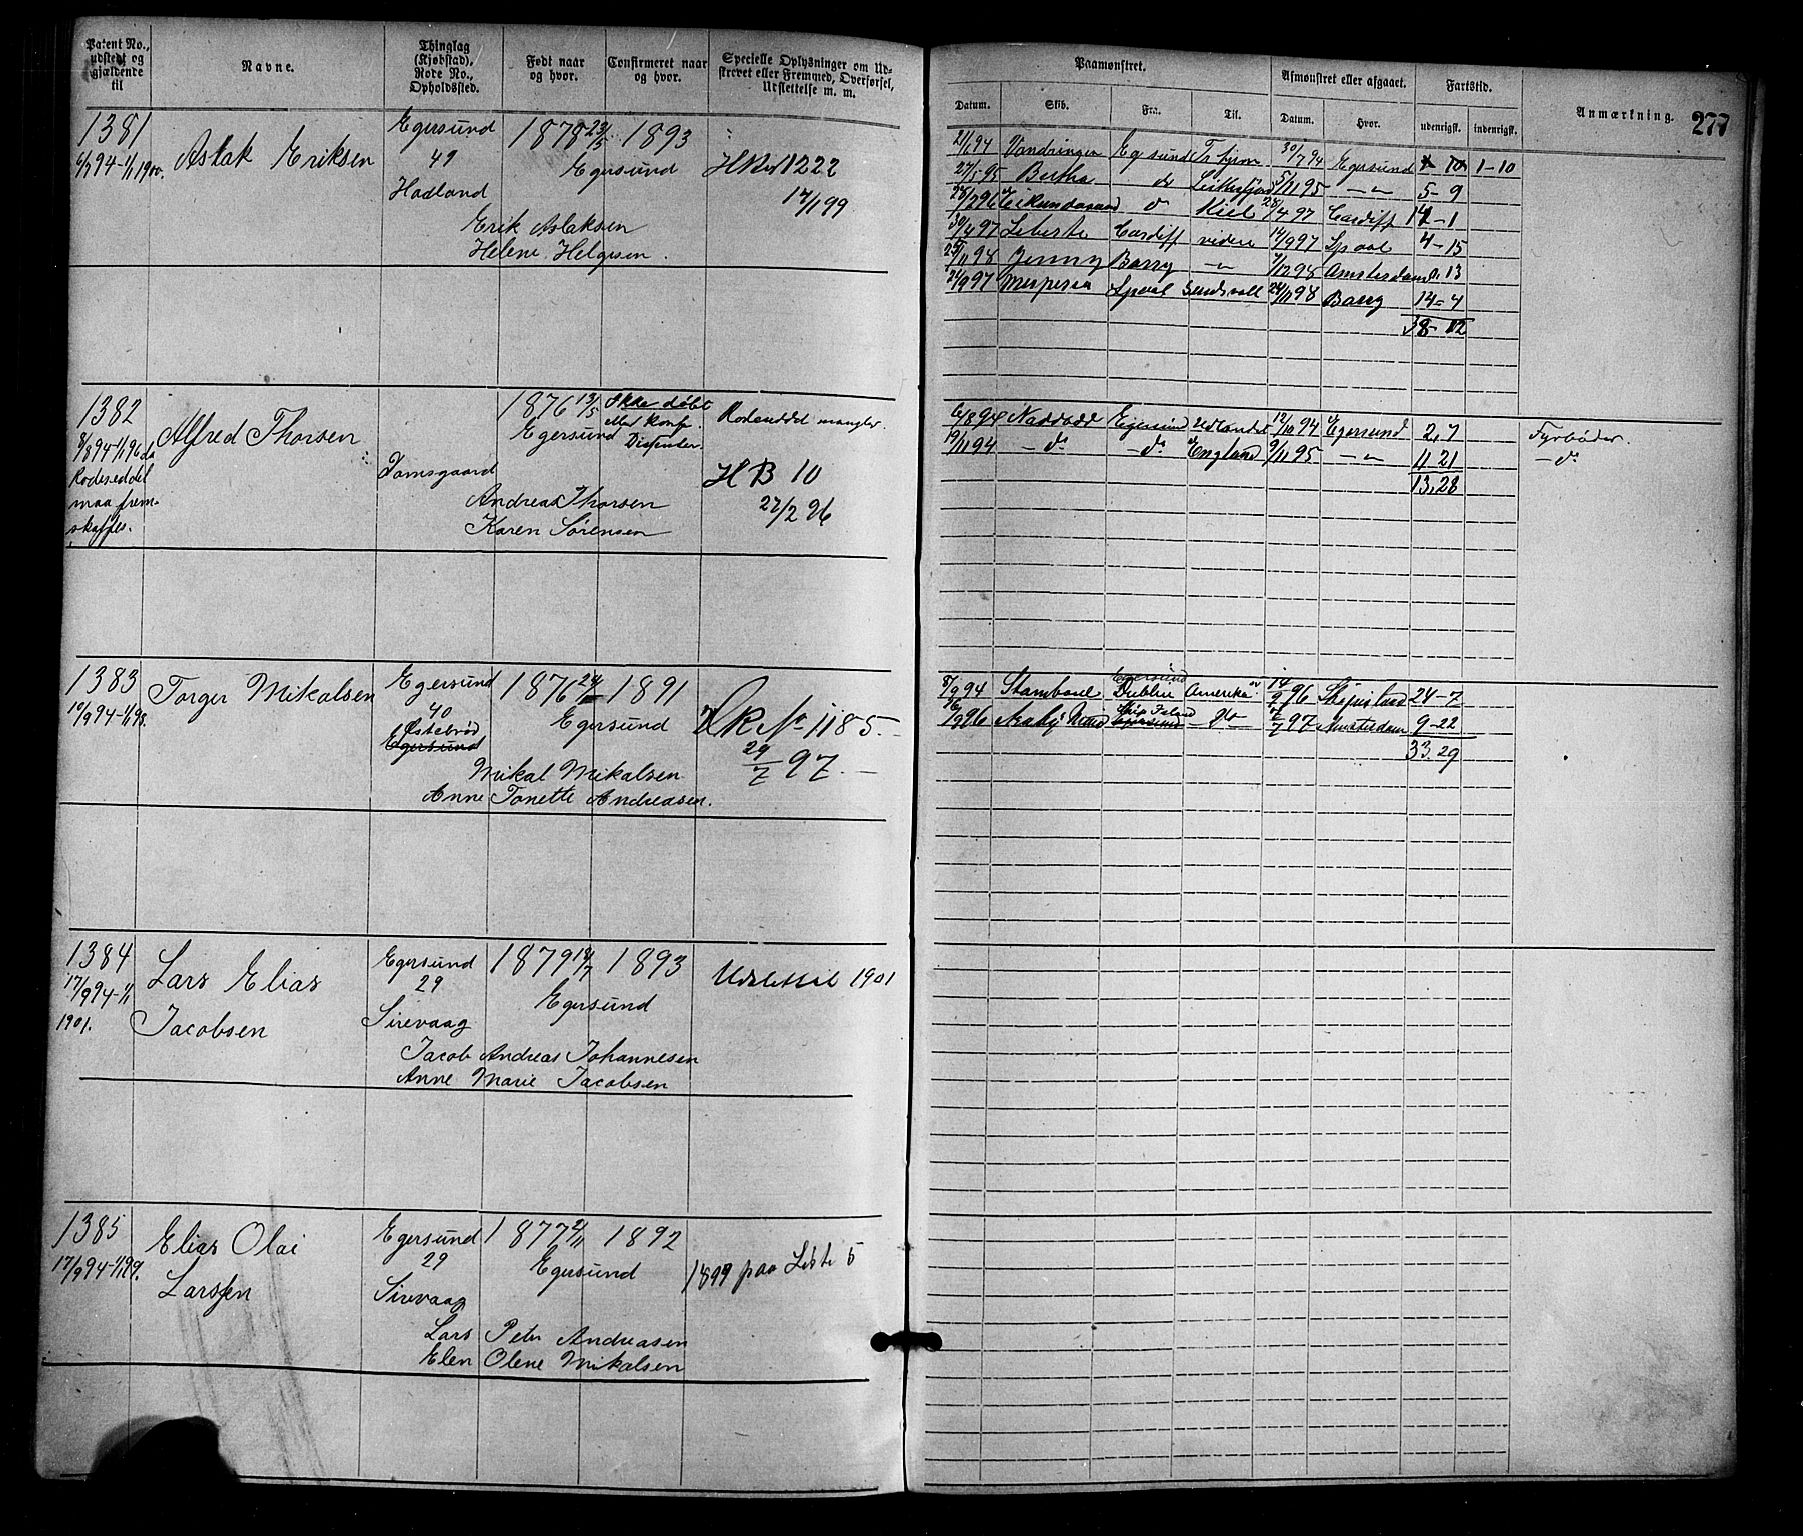 Patent No.,
udstedt og
gjældende
til
Navne.
Thinglag
(Kjøbstad),
Rode No.,
Opholdssted.
Født naar
og hvor.
Confirmeret naar
og hvor.
Specielle Oplysninger om Ud-
skrevet eller Fremmed, Overførsel,
Udslettelse m. m.
Paamønstret.
Datum.
Skib.
Fra.
Til.
Afmønstret eller afgaaet.
Datum.
Hvor.
Fartstid.
udenrigsk.
indenrigsk.
Anmærkning.
277
1381
6/7 94-1/1 1900.
Aslak Eriksen
Egersund
49
Hadland
1878 23/5
1893
Egersund
Erik Aslaksen
Helene Helgesen.
1222
17/1 99
21/1 94 Vandringen Egersund 30/7 94 Egersund 1-10
27/5 95 Bertha do 5/11 95 -"- 5-9
28/2 96 do Kiel 28/4 97 Cardiff 14-1
30/4 97 Cardiff videre 14/9 97 4-15
Jenny Barry -"- 7/12 98 Amsterdam 0.13
24/9 97 24/11 98 Barry 14-4
38-12
1382
8/8 94-1/1 96 da
Rodeseddel
maa frem-
skaffes.
Alfred Thorsen
Damsgaard
1876 13/5
Egersund
Ikke døbt
eller konf.
Dissenter
Andreas Thorsen
Karen Sørensen
Rodeseddel mangler.
HB 10
27/2 96
6/8 94 Naddodd Egersund Udlandet 12/10 94 Egersund 2,7 Fyrbøder.
19/11 94 -do- -do- England 9/11 95 -"- 11 21 -do-
13,28
1383
10/9 94-1/1 98.
Torger Mikalsen
Egersund
40
Østebrød
Egersund
1876
1891
Egersund
Mikal Mikalsen
Anne Tonette Andreasen.
No 1185.
29/7 97.
8/9 94 Egersund
Dublin Amerika 96 24-7
97 Amsterdam 9-22
33.29
1384
17/9 94-1/1
1901.
Lars Elias
Jacobsen
Egersund
29
Sirevaag
1879 18/7
1893
Egersund
Jacob Andreas Johannesen
Anne Marie Jacobsen
Udslettet 1901
1385
17/9 94-1/1 99.
Elias Olai
Larssen
Egersund
29
Sirevaag
1877 2/11
1892
Egersund
Lars Peter Andreasen
Elen Olene Mikalsen
1899 paa Liste 5